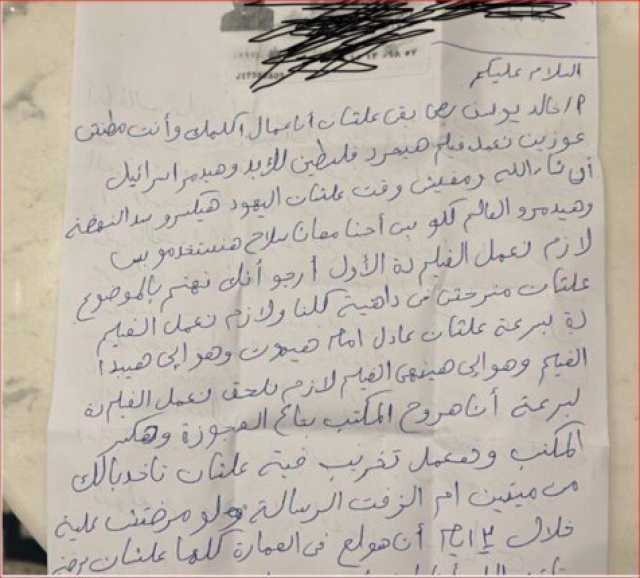 السلام عليكم
أ/خالد يوسف بعا بقى علشان أنا عمال اكلمك وأنت مطنش
عوزين نعمل فيلم هيحرد فلسطين للأبد وهيدمر اسرائيل
أن شاء الله ومفيش وقت علشان اليهود هيكسرو سد النهضة
وهيدمرو العالم كلو بس أحنا معانا سلاح هنستخدمو بس
لازم نعمل الفيلم دة الأول أرجو أنك تهتم بالموضوع
علشان منرحش فى داهية كلنا ولازم نعمل الفيلم
دة لبرعة علشان عادل امام هيموت وهو الى هيبدا
الفيلم وهو الى هينهى الفيلم لازم نلحق نعمل الفيلم دة
لبرعة أنا هروح المكتب بتاع العجوزة وهكسر
المكتب وهعمل تخريب فية علشان تاخد بالك
من ميتين ام الزفت الرسالة ولو مردتش علية
خلال ٣ ايام أنا هولع فى العمارة كلها علشان